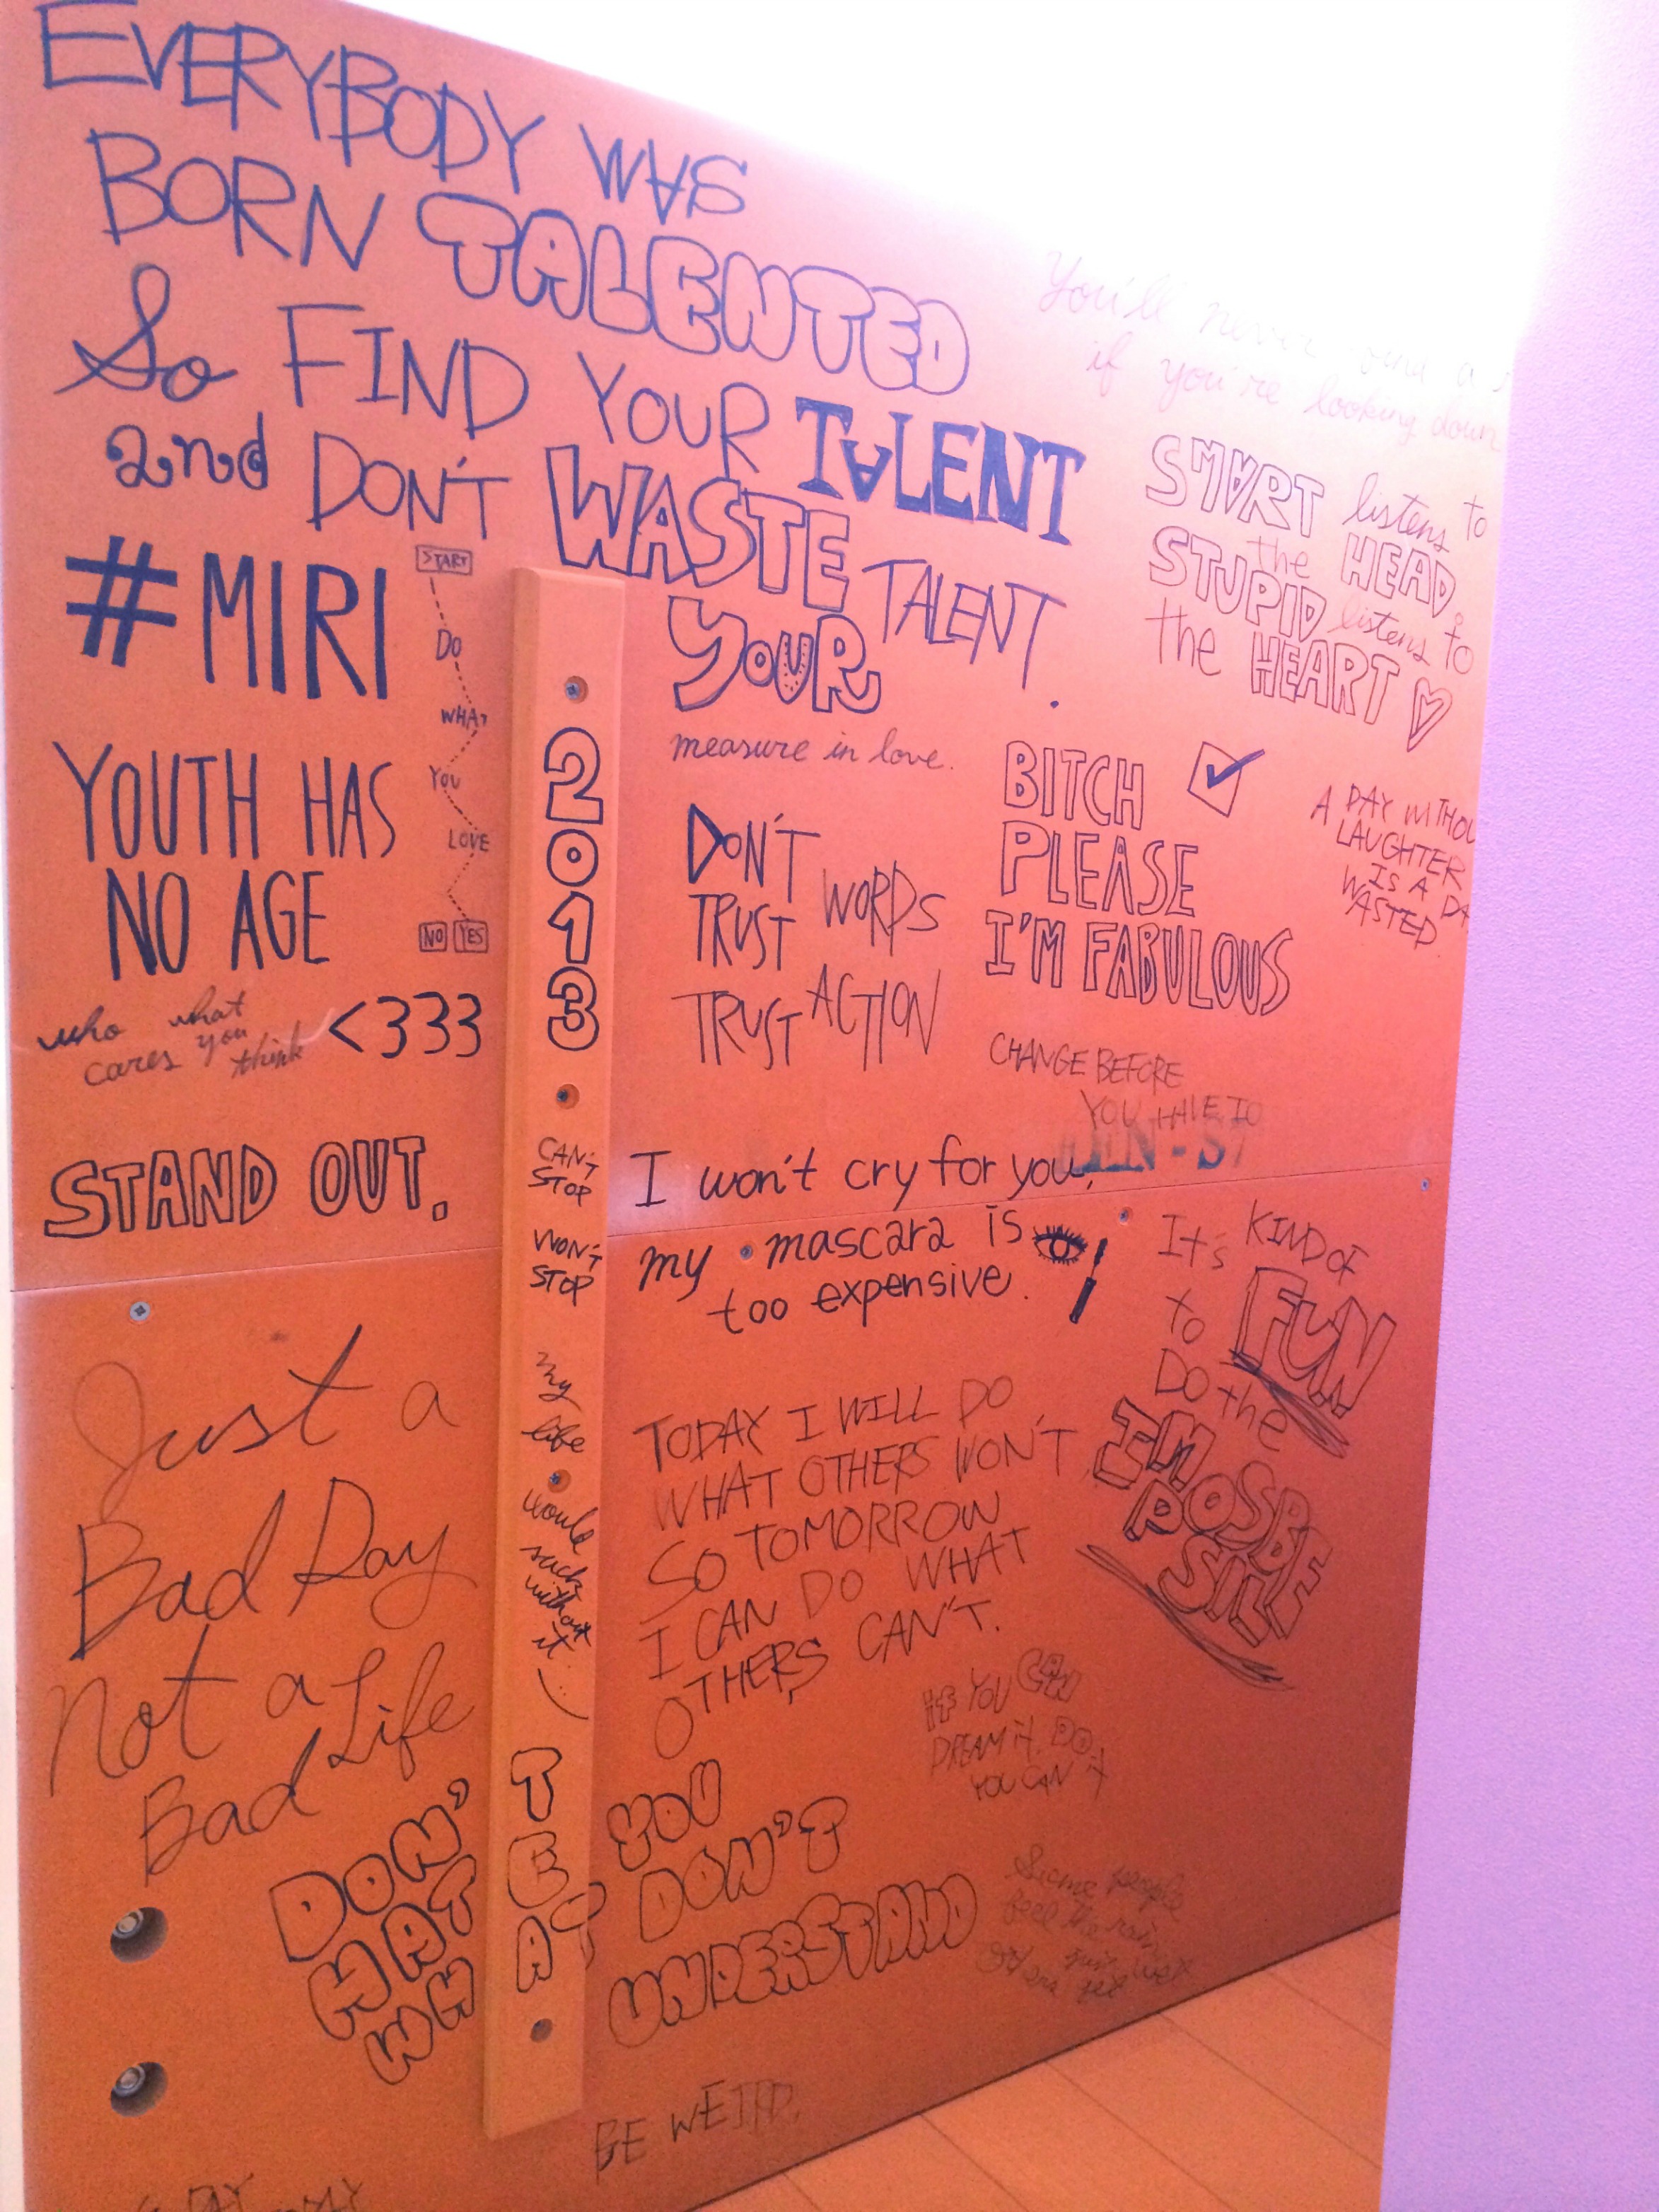 EVERYBODY WAS
BORN TALENTED
So FIND YOUR TALENT
and DON'T WASTE
YOUR TALENT.
You'll never find a
if you're looking down
SMART listens to
the HEAD.
STUPID listens to
the HEART
#MIRI
START
DO
WHAT
YOU
LOVE
NO YES
YOUTH HAS
NO AGE
who cares what you think
<333
STAND OUT.
2013
CAN'T
STOP
WON'T
STOP
my
life
would
suck
without
it
measure in love.
DON'T
TRUST WORDS
TRUST ACTION
BITCH
PLEASE
I'M FABULOUS
A DAY WITHOU
LAUGHTER
IS A DA
WASTED
CHANGE BEFORE
YOU HAVE TO
I won't cry for you,
my mascara is
too expensive.
It's KIND OF
FUN
to
DO the
IMPOSSIBLE
Just a
Bad Day
not a
Bad Life
TODAY I WILL DO
WHAT OTHERS WON'T
SO TOMORROW
I CAN DO WHAT
OTHERS CAN'T.
IF YOU CAN
DREAM IT, DO IT
YOU CAN
DON'T YOU
HATE DON'T
WHAT UNDERSTAND
Some people
feel the rain
get wet
BE WEIRD.
DAY